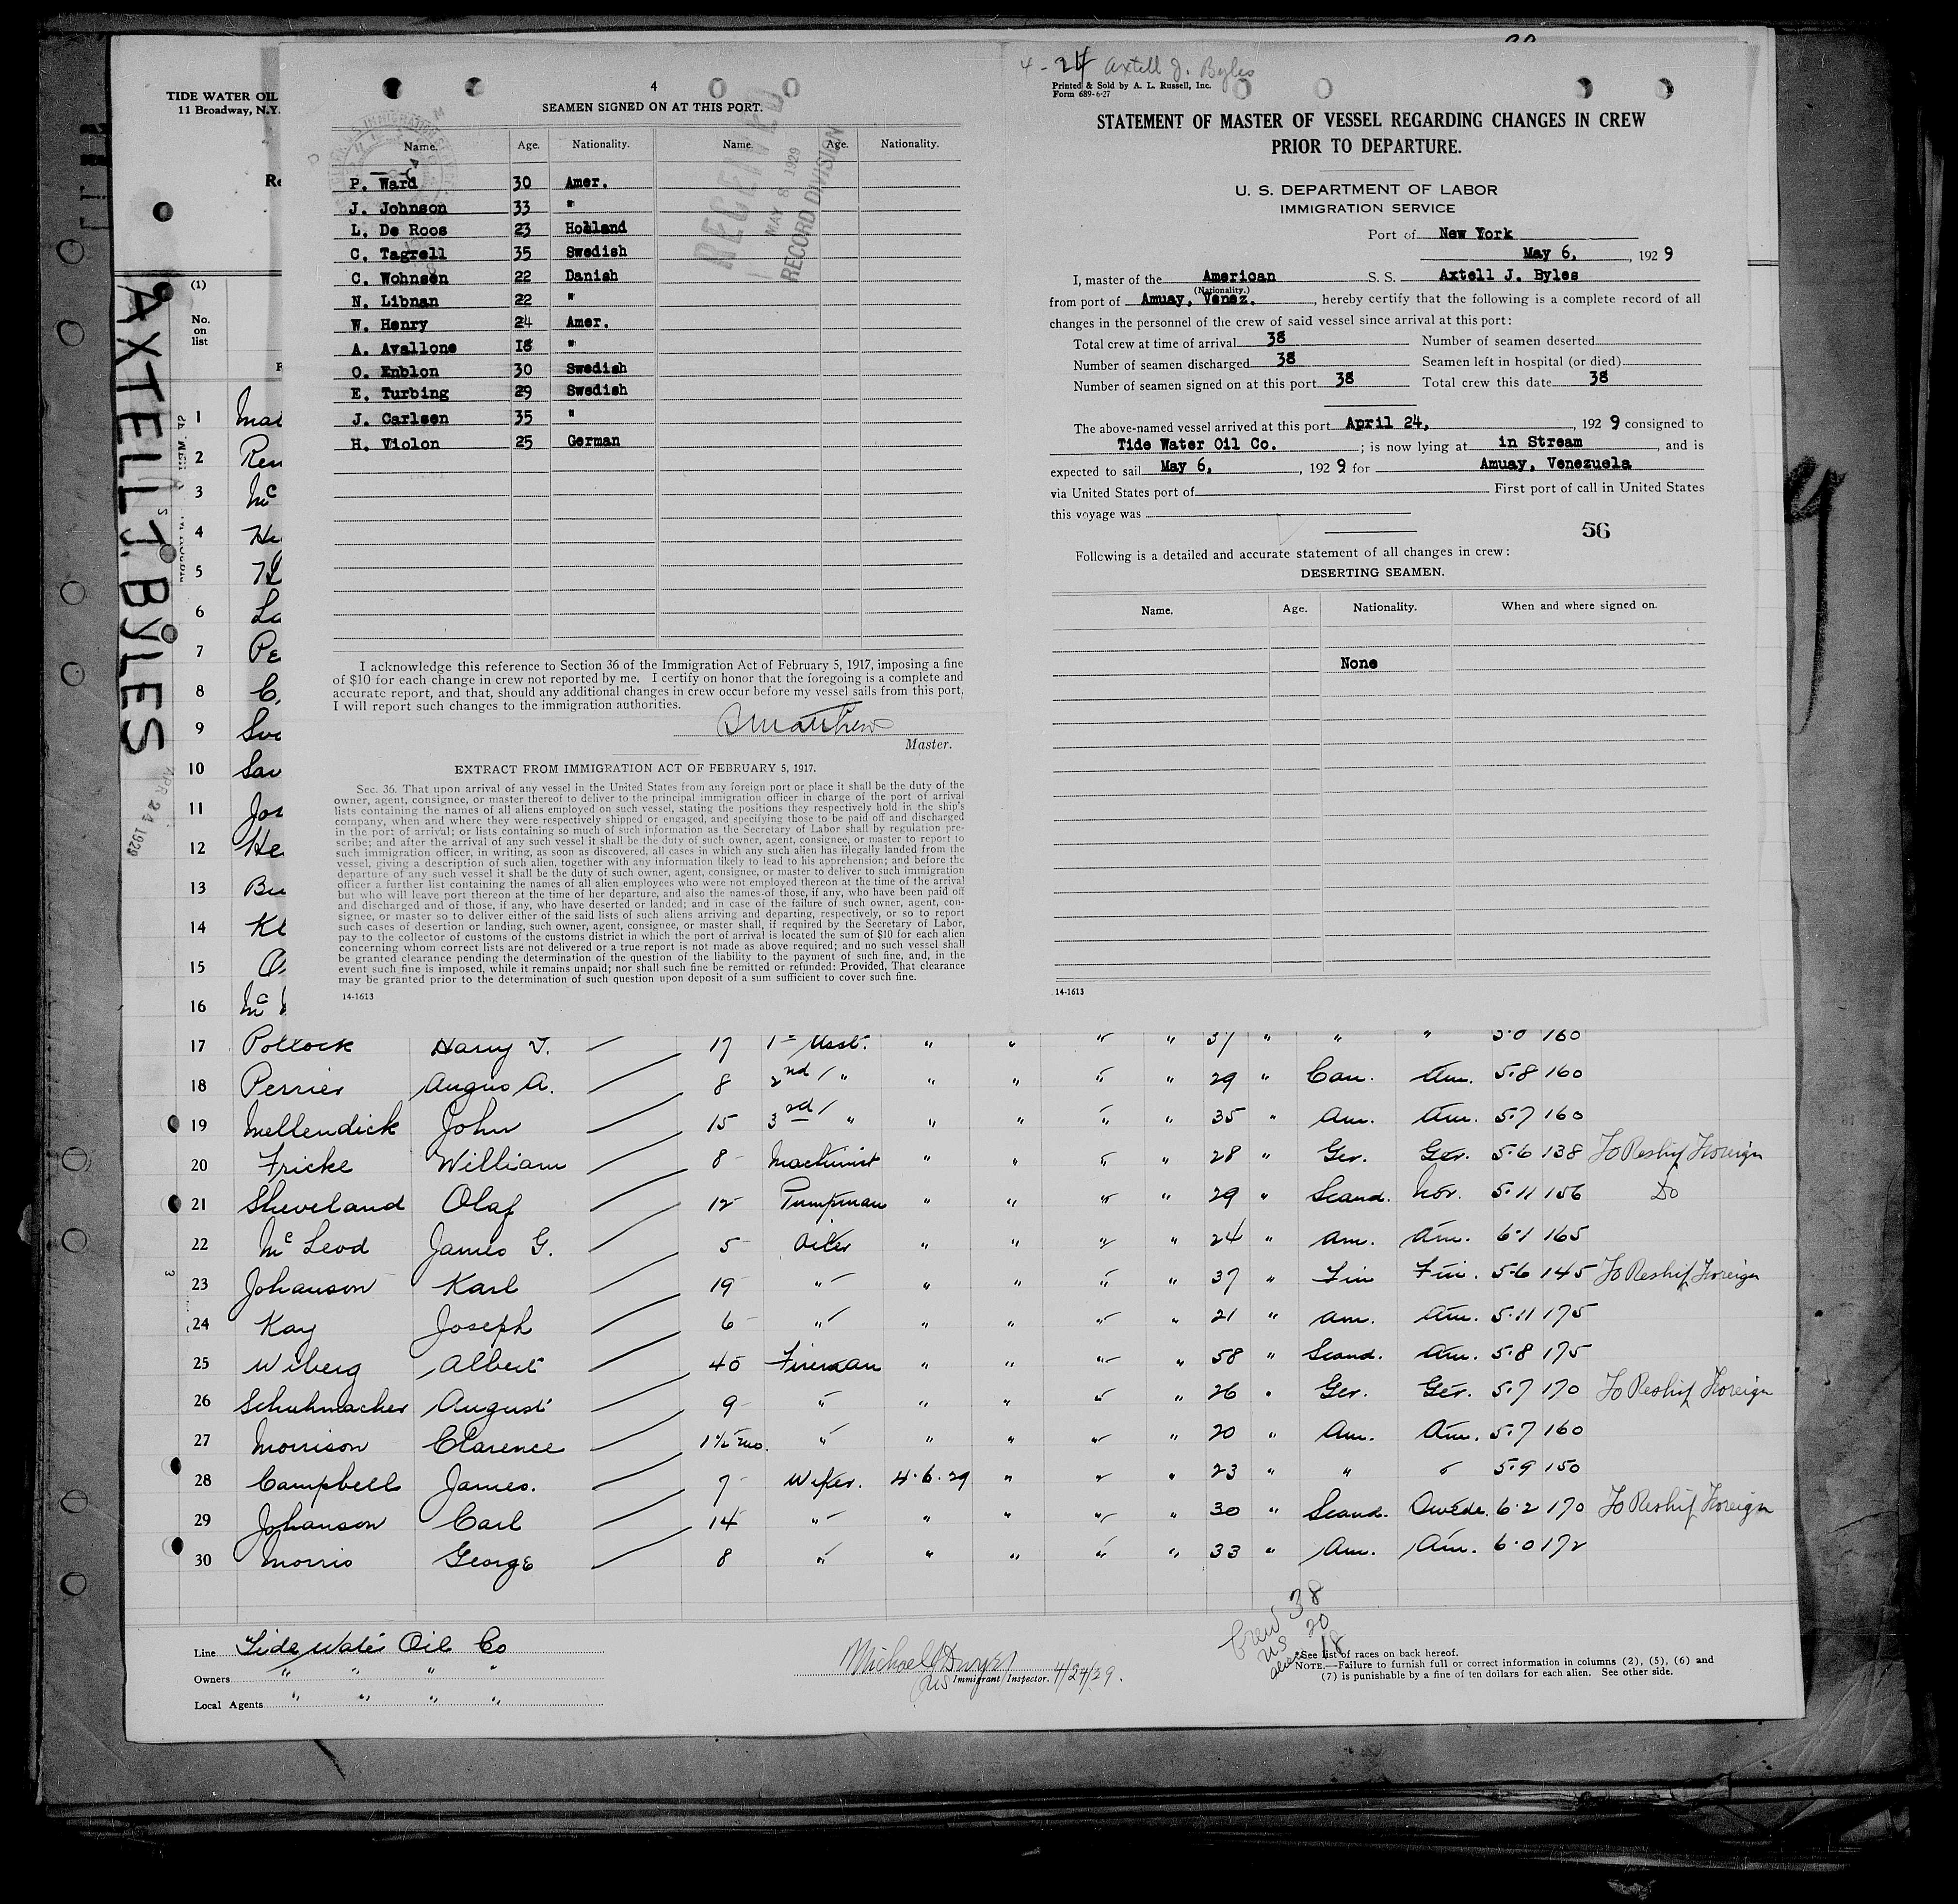 4
SEAMEN SIGNED ON AT THIS PORT.
Name. Age. Nationality. Name. Age. Nationality.
P. Ward 30 Amer.
J. Johnson 33 "
L. De Roos 23 Holland
C. Tagrell 35 Swedish
C. Wohnsen 22 Danish
N. Libnan 22 "
W. Henry 24 Amer.
A. Avallone 18 "
O. Enblon 30 Swedish
E. Turbing 29 Swedish
J. Carlsen 35 "
H. Violon 25 German
RECEIVED
MAY 8 1929
RECORD DIVISION
I acknowledge this reference to Section 36 of the Immigration Act of February 5, 1917, imposing a fine
of $10 for each change in crew not reported by me. I certify on honor that the foregoing is a complete and
accurate report, and that, should any additional changes in crew occur before my vessel sails from this port,
I will report such changes to the immigration authorities.
Master.
EXTRACT FROM IMMIGRATION ACT OF FEBRUARY 5, 1917.
Sec. 36. That upon arrival of any vessel in the United States from any foreign port or place it shall be the duty of the
owner, agent, consignee, or master thereof to deliver to the principal immigration officer in charge of the port of arrival
lists containing the names of all aliens employed on such vessel, stating the positions they respectively hold in the ship's
company, when and where they were respectively shipped or engaged, and specifying those to be paid off and discharged
in the port of arrival; or lists containing so much of such information as the Secretary of Labor shall by regulation pre-
scribe; and after the arrival of any such vessel it shall be the duty of such owner, agent, consignee, or master to report to
such immigration officer, in writing, as soon as discovered, all cases in which any such alien has illegally landed from the
vessel, giving a description of such alien, together with any information likely to lead to his apprehension; and before the
departure of any such vessel it shall be the duty of such owner, agent, consignee, or master to deliver to such immigration
officer a further list containing the names of all alien employees who were not employed thereon at the time of the arrival
but who will leave port thereon at the time of her departure, and also the names of those, if any, who have been paid off
and discharged and of those, if any, who have deserted or landed; and in case of the failure of such owner, agent, con-
signee, or master so to deliver either of the said lists of such aliens arriving and departing, respectively, or so to report
such cases of desertion or landing, such owner, agent, consignee, or master shall, if required by the Secretary of Labor,
pay to the collector of customs of the customs district in which the port of arrival is located the sum of $10 for each alien
concerning whom correct lists are not delivered or a true report is not made as above required; and no such vessel shall
be granted clearance pending the determination of the question of the liability to the payment of such fine, and, in the
event such fine is imposed, while it remains unpaid; nor shall such fine be remitted or refunded: Provided, That clearance
may be granted prior to the determination of such question upon deposit of a sum sufficient to cover such fine.
14-1613
4-24 Axtell J. Byles
Printed & Sold by A. L. Russell, Inc.
Form 689-6-27
STATEMENT OF MASTER OF VESSEL REGARDING CHANGES IN CREW
PRIOR TO DEPARTURE.
U. S. DEPARTMENT OF LABOR
IMMIGRATION SERVICE
Port of New York
May 6, 1929
I, master of the American S. S. Axtell J. Byles
(Nationality.)
from port of Amuay, Venez. , hereby certify that the following is a complete record of all
changes in the personnel of the crew of said vessel since arrival at this port:
Total crew at time of arrival 38 Number of seamen deserted
Number of seamen discharged 38 Seamen left in hospital (or died)
Number of seamen signed on at this port 38 Total crew this date 38
The above-named vessel arrived at this port April 24, , 1929 consigned to
Tide Water Oil Co. ; is now lying at in Stream , and is
expected to sail May 6, , 1929 for Amuay, Venezuela
via United States port of First port of call in United States
this voyage was
56
Following is a detailed and accurate statement of all changes in crew:
DESERTING SEAMEN.
Name. Age. Nationality. When and where signed on.
None
14-1613
TIDE WATER OIL
11 Broadway, N.Y.
(1)
No.
on
list
AXTELL J. BYLES
APR 24 1929
1 Mai
2 Ren
3 Mc
4 He
5
6 Lo
7 Pe
8 C.
9 Sve
10 Sav
11 Jos
12 He
13 Bu
14 Kl
15 O
16 Mc
17 Pollock Harry J. 17 1st Asst. " " " " 37 " " " 5.0 160
18 Perrier Angus A. 8 2nd " " " " " 29 " Can. Am. 5.8 160
19 Mellendick John 15 3rd " " " " " 35 " Am. Am. 5.7 160
20 Fricke William 8 Machinist " " " " 28 " Ger. Ger. 5.6 138 To Reship Foreign
21 Sheveland Olaf 12 Pumpman " " " " 29 " Scand. Nor. 5.11 156 Do
22 Mc Leod James G. 5 Oiler " " " " 24 " Am. Am. 6.1 165
23 Johanson Karl 19 " " " " " 37 " Fin Fin. 5.6 145 To Reship Foreign
24 Kay Joseph 6 " " " " " 21 " Am. Am. 5.11 175
25 Wiberg Albert 40 Fireman " " " " 58 " Scand. Am. 5.8 175
26 Schuhmacher August 9 " " " " " 26 " Ger. Ger. 5.7 170 To Reship Foreign
27 Morrison Clarence 1½ mo. " " " " " 20 " Am. Am. 5.7 160
28 Campbell James. 7 Wiper. 4.6.29 " " " 23 " " " 5.9 150
29 Johanson Carl 14 " " " " " 30 " Scand. Swede. 6.2 170 To Reship Foreign
30 Morris George 8 " " " " " 33 " Am. Am. 6.0 172
Crew 38
US 20
alien 18
Line Tide Water Oil Co
Owners " " " "
Local Agents " " " "
Michael Dwyer
Immigrant Inspector. 4/24/29.
See list of races on back hereof.
NOTE.—Failure to furnish full or correct information in columns (2), (5), (6) and
(7) is punishable by a fine of ten dollars for each alien. See other side.